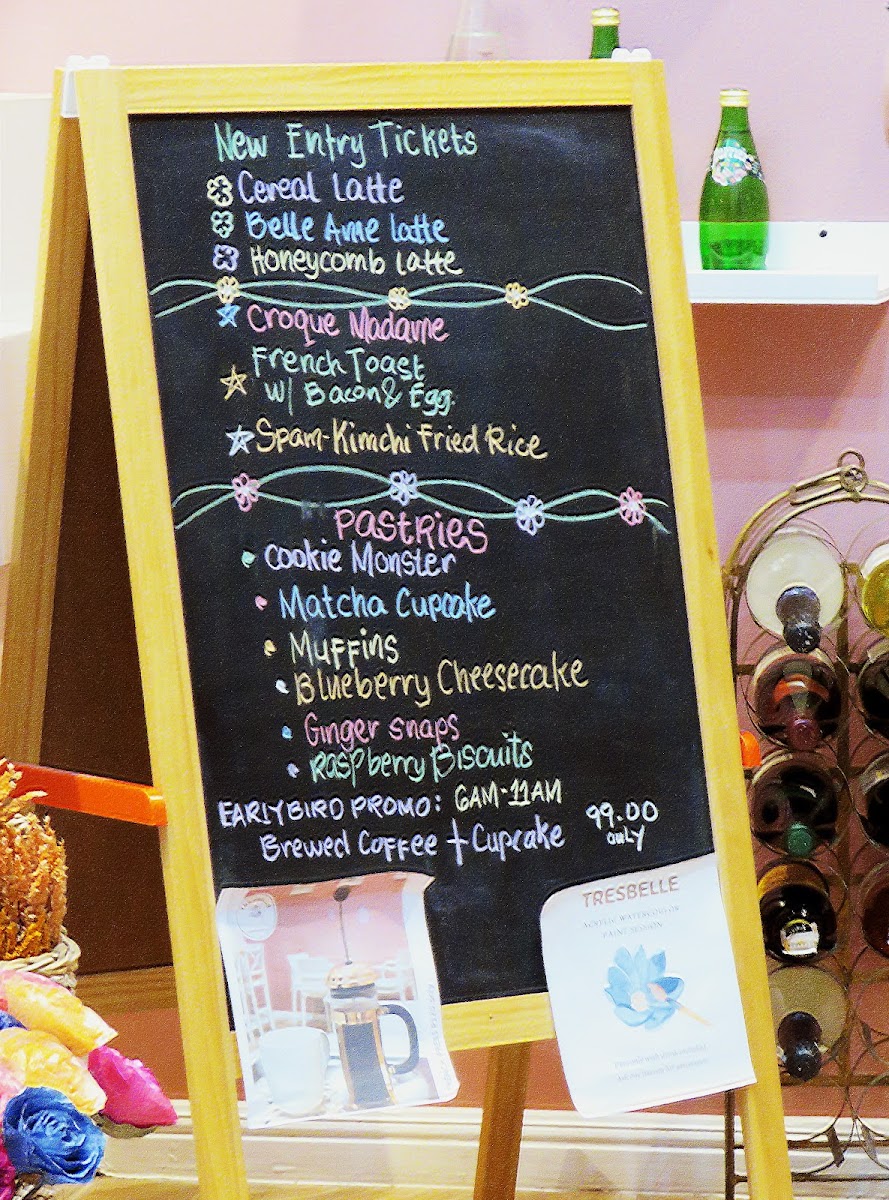 New Entry Tickets
Cereal Latte
Belle Ame latte
Honeycomb latte
Croque Madame
French Toast
w/ Bacon & Egg.
Spam-Kimchi Fried Rice
Pastries
Cookie Monster
Matcha Cupcake
Muffins
Blueberry Cheesecake
Ginger snaps
Raspberry Biscuits
EARLYBIRD PROMO: 6AM-11AM
Brewed Coffee + Cupcake
99.00
only
TRESBELLE
ACRYLIC WATERCOLOR
PAINT SESSION